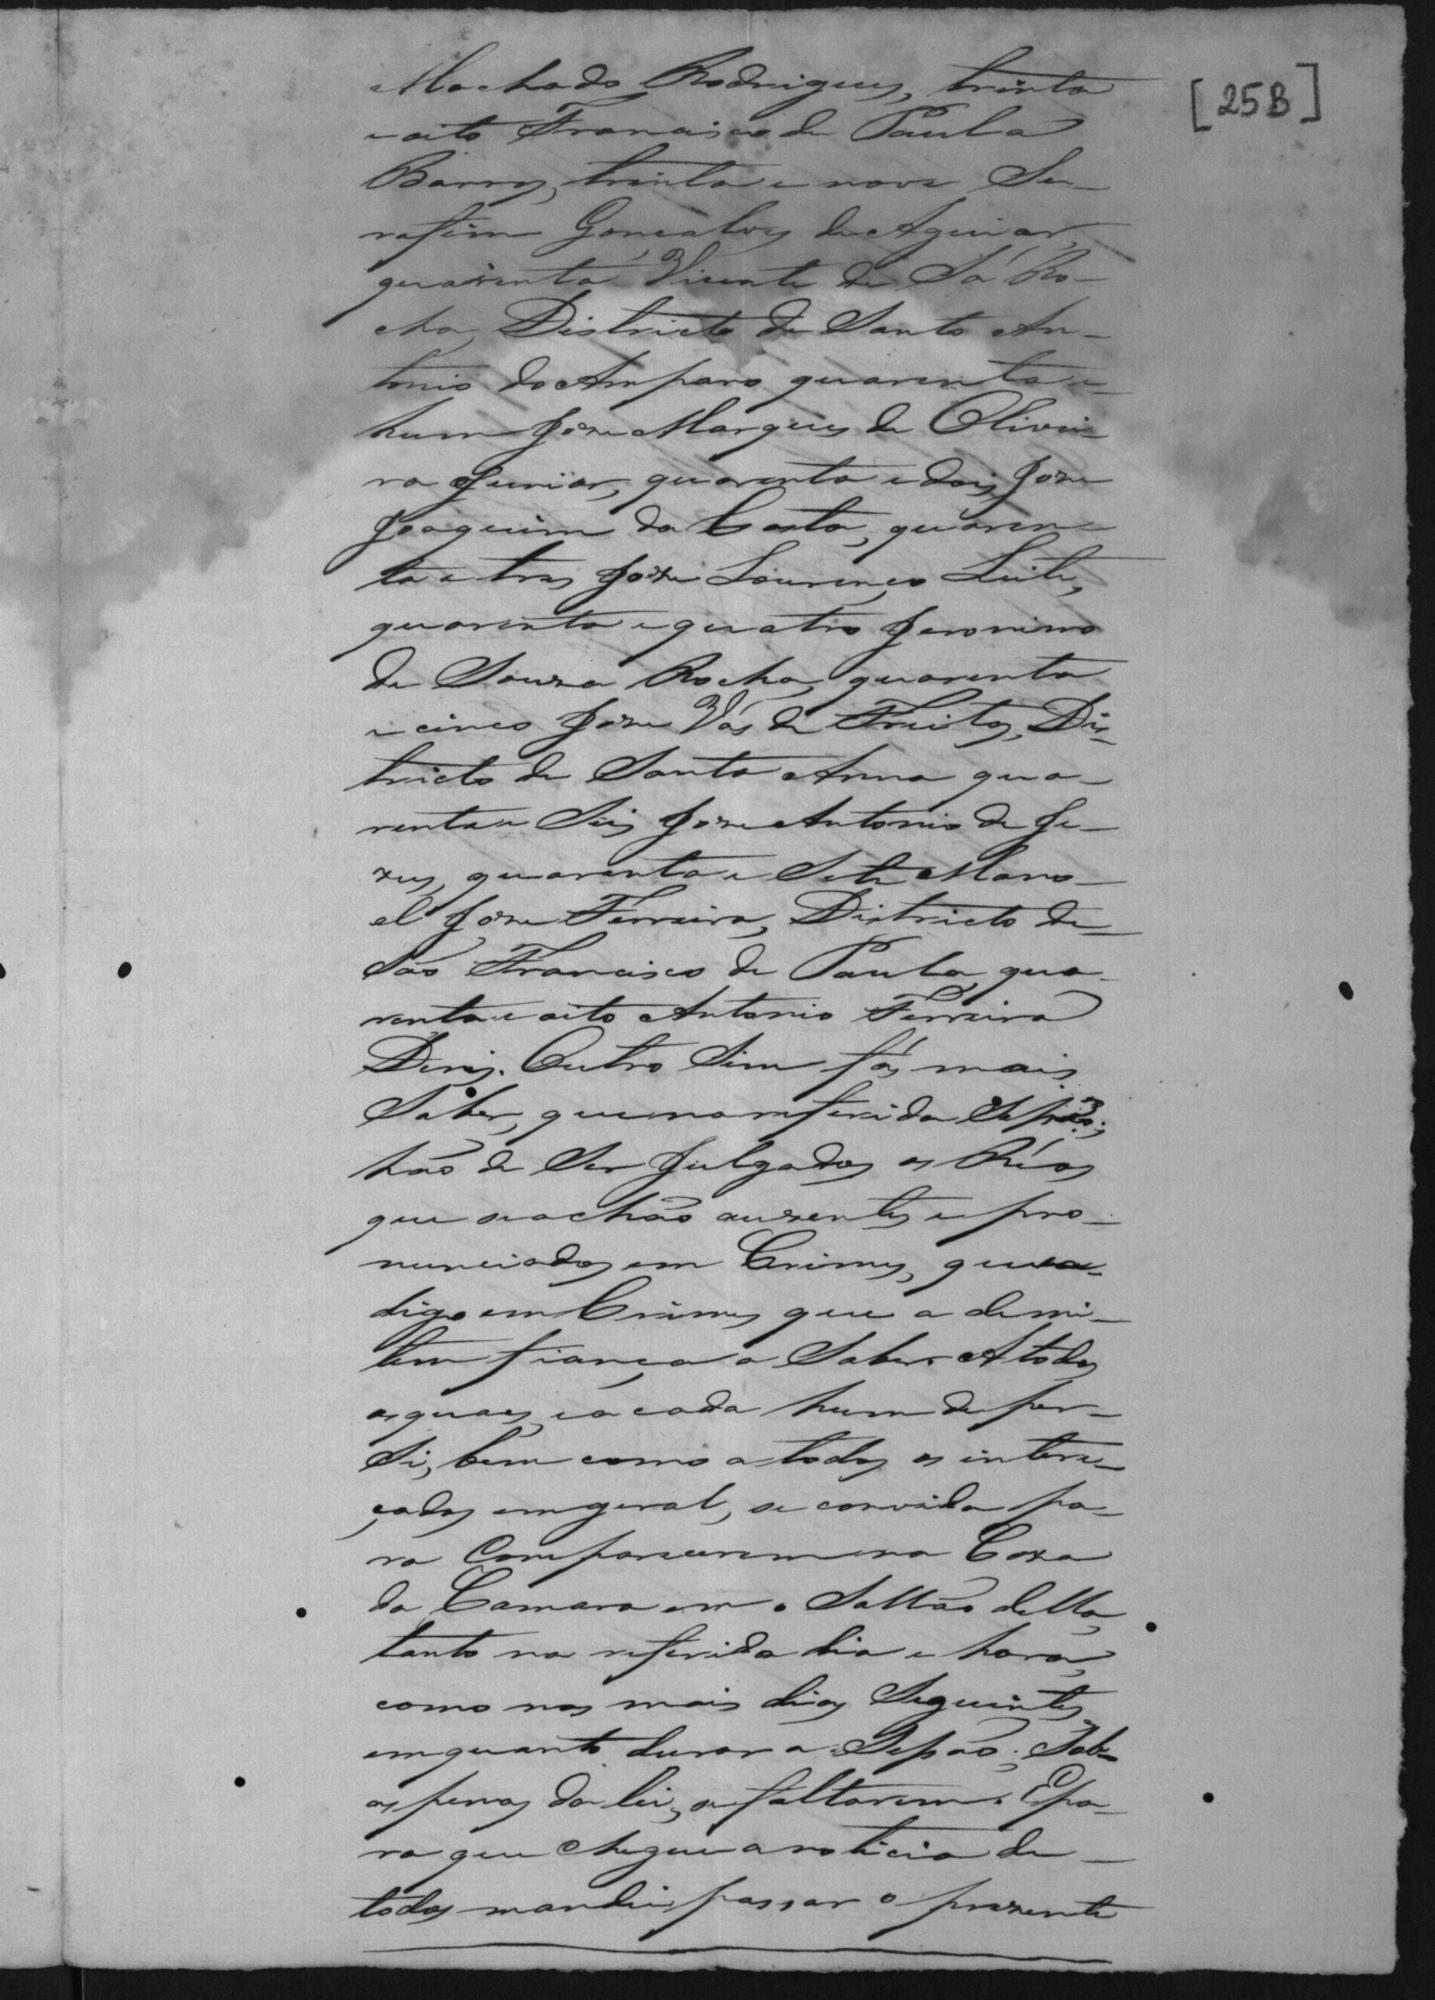 [25B]
Machado Rodrigues, trinta
e oito Francisco de Paula
Barros, trinta e nove Se-
rafim Gonçalves de Aguiar,
quarenta Vicente de Sá Ro-
cha, Districto de Santo An-
tonio do Amparo quarenta e
hum Joze Marques de Olivei-
ra Junior, quarenta e dois Joze
Joaquim da Costa, quaren-
ta e tres Joze Lourenço Leite,
quarenta e quatro Jeronimo
de Souza Rocha, quarenta
e cinco Joze Vás de Freitas, Dis-
tricto de Santa Anna qua-
renta e Seis Joze Antonio de Je-
zus, quarenta e Sete Mano-
el Joze Ferreira, Districto de
São Francisco de Paula, qua-
renta e oito Antonio Ferreira
Diniz. Outro Sim fás mais
Saber, que na referida Sessão;
hão de Ser Julgados os Réos
que se achão auzentes e pro-
nunciados em Crimes, que
digo em Crimes que ademi-
tem fiança a Saber. A todos
os quaes, e a cada hum de per-
Si, bem como a todos os intere-
çados em geral, se convida pa-
ra Comparecerem na Caza
da Camara em o Sallão della,
tanto no referido dia e hora,
como nos mais dias Seguintes,
emquanto durar a Sessão; Sob-
as penas da lei, se faltarem. E pa-
ra que chegue a noticia de
todos mandei passar o prezente